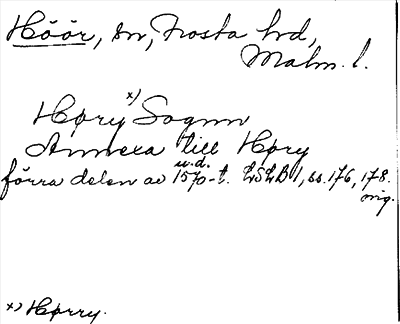 Höör, sn, Frosta hd,
Malm. l.
Høry x) Sognn
Annexa till Høry
u.d.
förra delen av 1570-t. LSLB 1, ss. 176, 178.
orig.
x) Hørry.